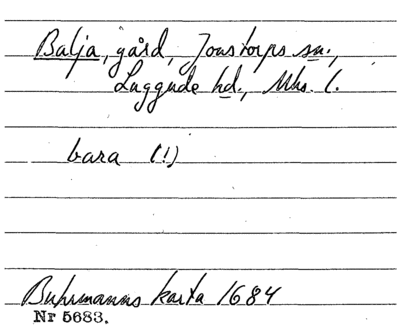 Balja, gård, Jonstorps sn.,
Luggude hd., Mhs. l.
bara (!)
Buhrmanns karta 1684
Nr 5683.